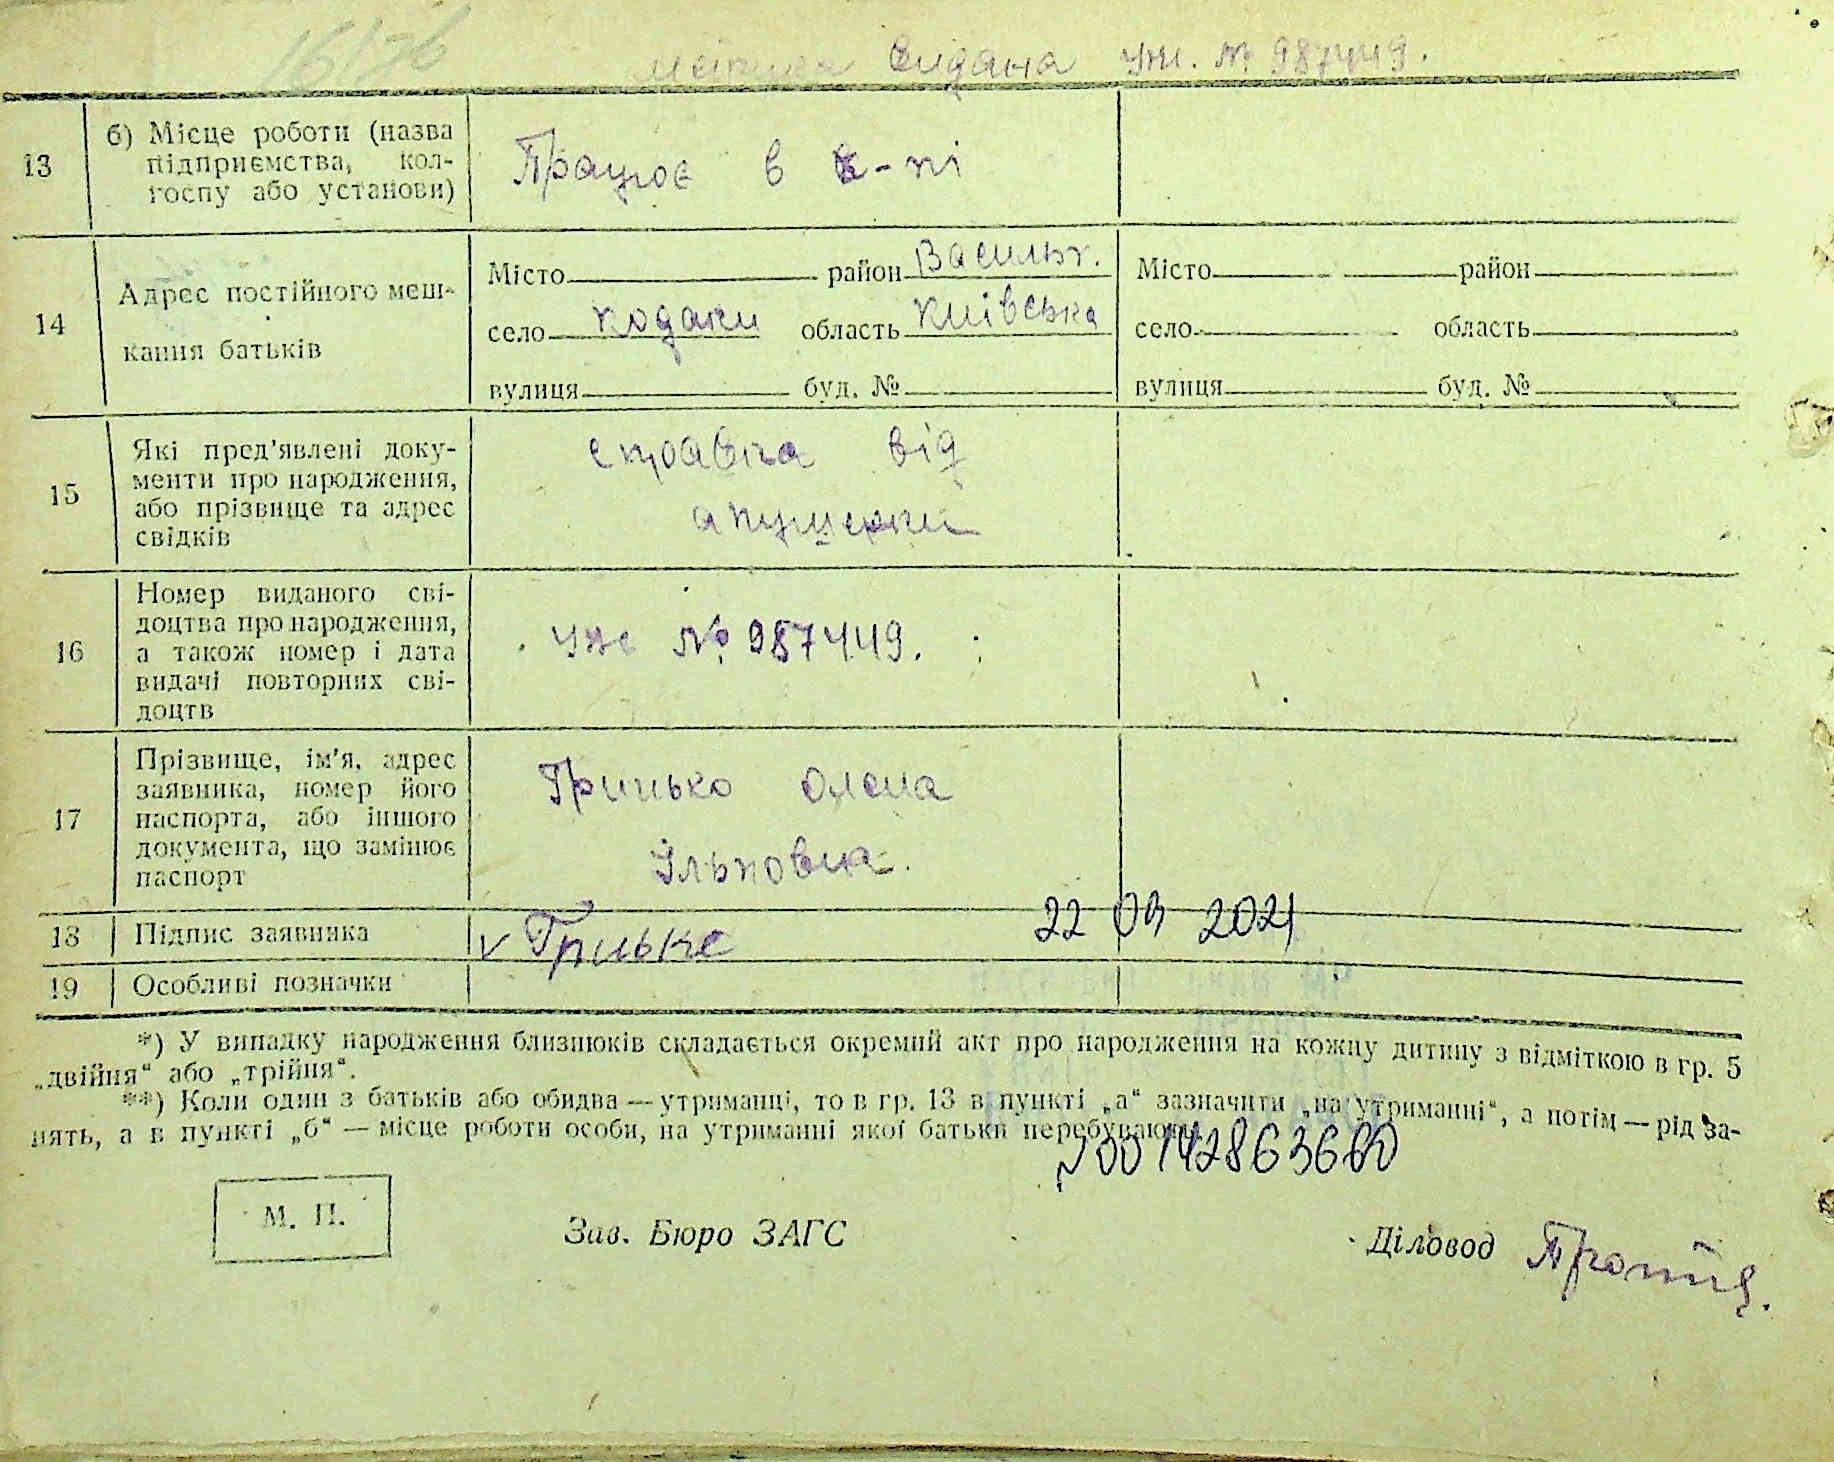 16/76
Метрика видана УЖ. № 987449.
13 б) Місце роботи (назва підприємства, кол-
госпу або установи)
Працює в к-пі
14 Адрес постійного меш-
кання батьків
Місто район Васильк. Місто район
село Кодаки область Київська село область
вулиця буд. № вулиця буд. №
15 Які пред'явлені доку-
менти про народження,
або прізвище та адрес
свідків
справка від
акушерки
16 Номер виданого сві-
доцтва про народження,
а також номер і дата
видачі повторних сві-
доцтв
УЖ № 987449.
17 Прізвище, ім'я, адрес
заявника, номер його
паспорта, або іншого
документа, що замінює
паспорт
Гринько Олена
Ільковна.
18 Підпис заявника
v Гринько 22 09 2021
19 Особливі позначки
*) У випадку народження близнюків складається окремий акт про народження на кожну дитину з відміткою в гр. 5
„двійня“ або „трійня“.
**) Коли один з батьків або обидва — утриманці, то в гр. 13 в пункті „а“ зазначити „на утриманні“, а потім — рід за-
нять, а в пункті „б“ — місце роботи особи, на утриманні якої батьки перебувають.
М. П. Зав. Бюро ЗАГС Діловод